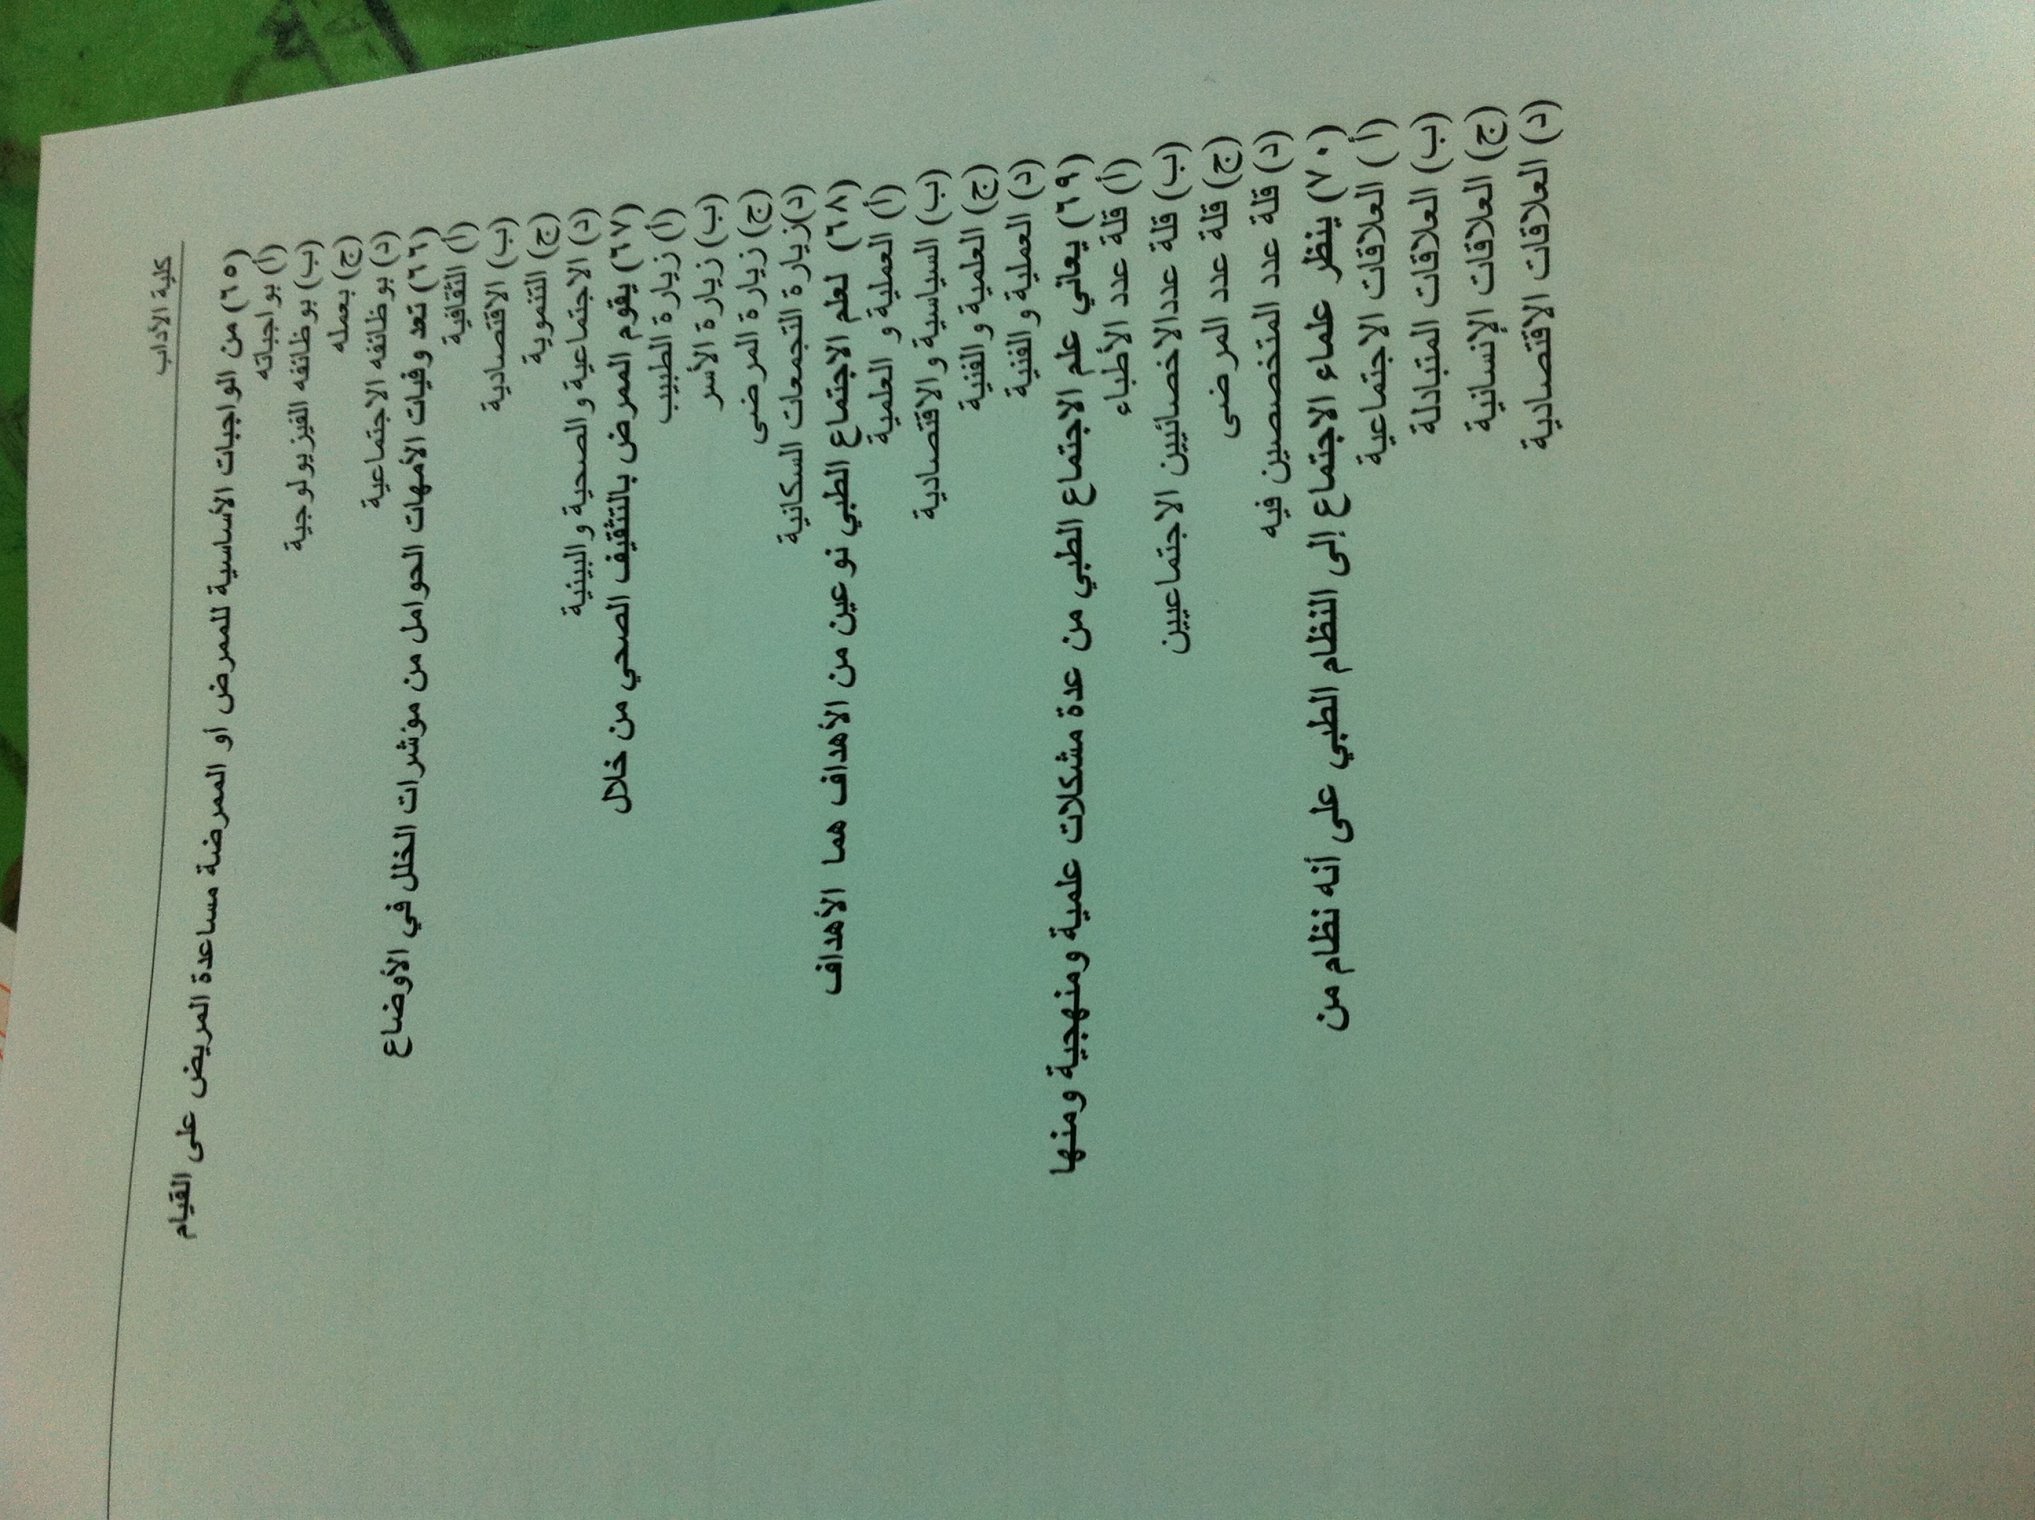 كلية الآداب
(٦٥) من الواجبات الأساسية للممرض او الممرضة مساعدة المريض على القيام
(أ) بواجباته
(ب) بوظائفه الفيزيولوجية
(ج) بعمله
(د) بوظائفه الاجتماعية
(٦٦) تعد وفيات الأمهات الحوامل من مؤشرات الخلل في الأوضاع
(أ) الثقافية
(ب) الاقتصادية
(ج) التنموية
(د) الاجتماعية والصحية والبيئية
(٦٧) يقوم الممرض بالتثقيف الصحي من خلال
(أ) زيارة الطبيب
(ب) زيارة الأسر
(ج) زيارة المرضى
(د) زيارة التجمعات السكانية
(٦٨) لعلم الاجتماع الطبي نوعين من الأهداف هما الأهداف
(أ) العملية و العلمية
(ب) السياسية والاقتصادية
(ج) العلمية والفنية
(د) العملية والفنية
(٦٩) يعاني علم الاجتماع الطبي من عدة مشكلات علمية ومنهجية ومنها
(أ) قلة عدد الأطباء
(ب) قلة عددالاخصائيين الاجتماعيين
(ج) قلة عدد المرضى
(د) قلة عدد المتخصصين فيه
(٧٠) ينظر علماء الاجتماع إلى النظام الطبي على أنه نظام من
(أ) العلاقات الاجتماعية
(ب) العلاقات المتبادلة
(ج) العلاقات الإنسانية
(د) العلاقات الاقتصادية